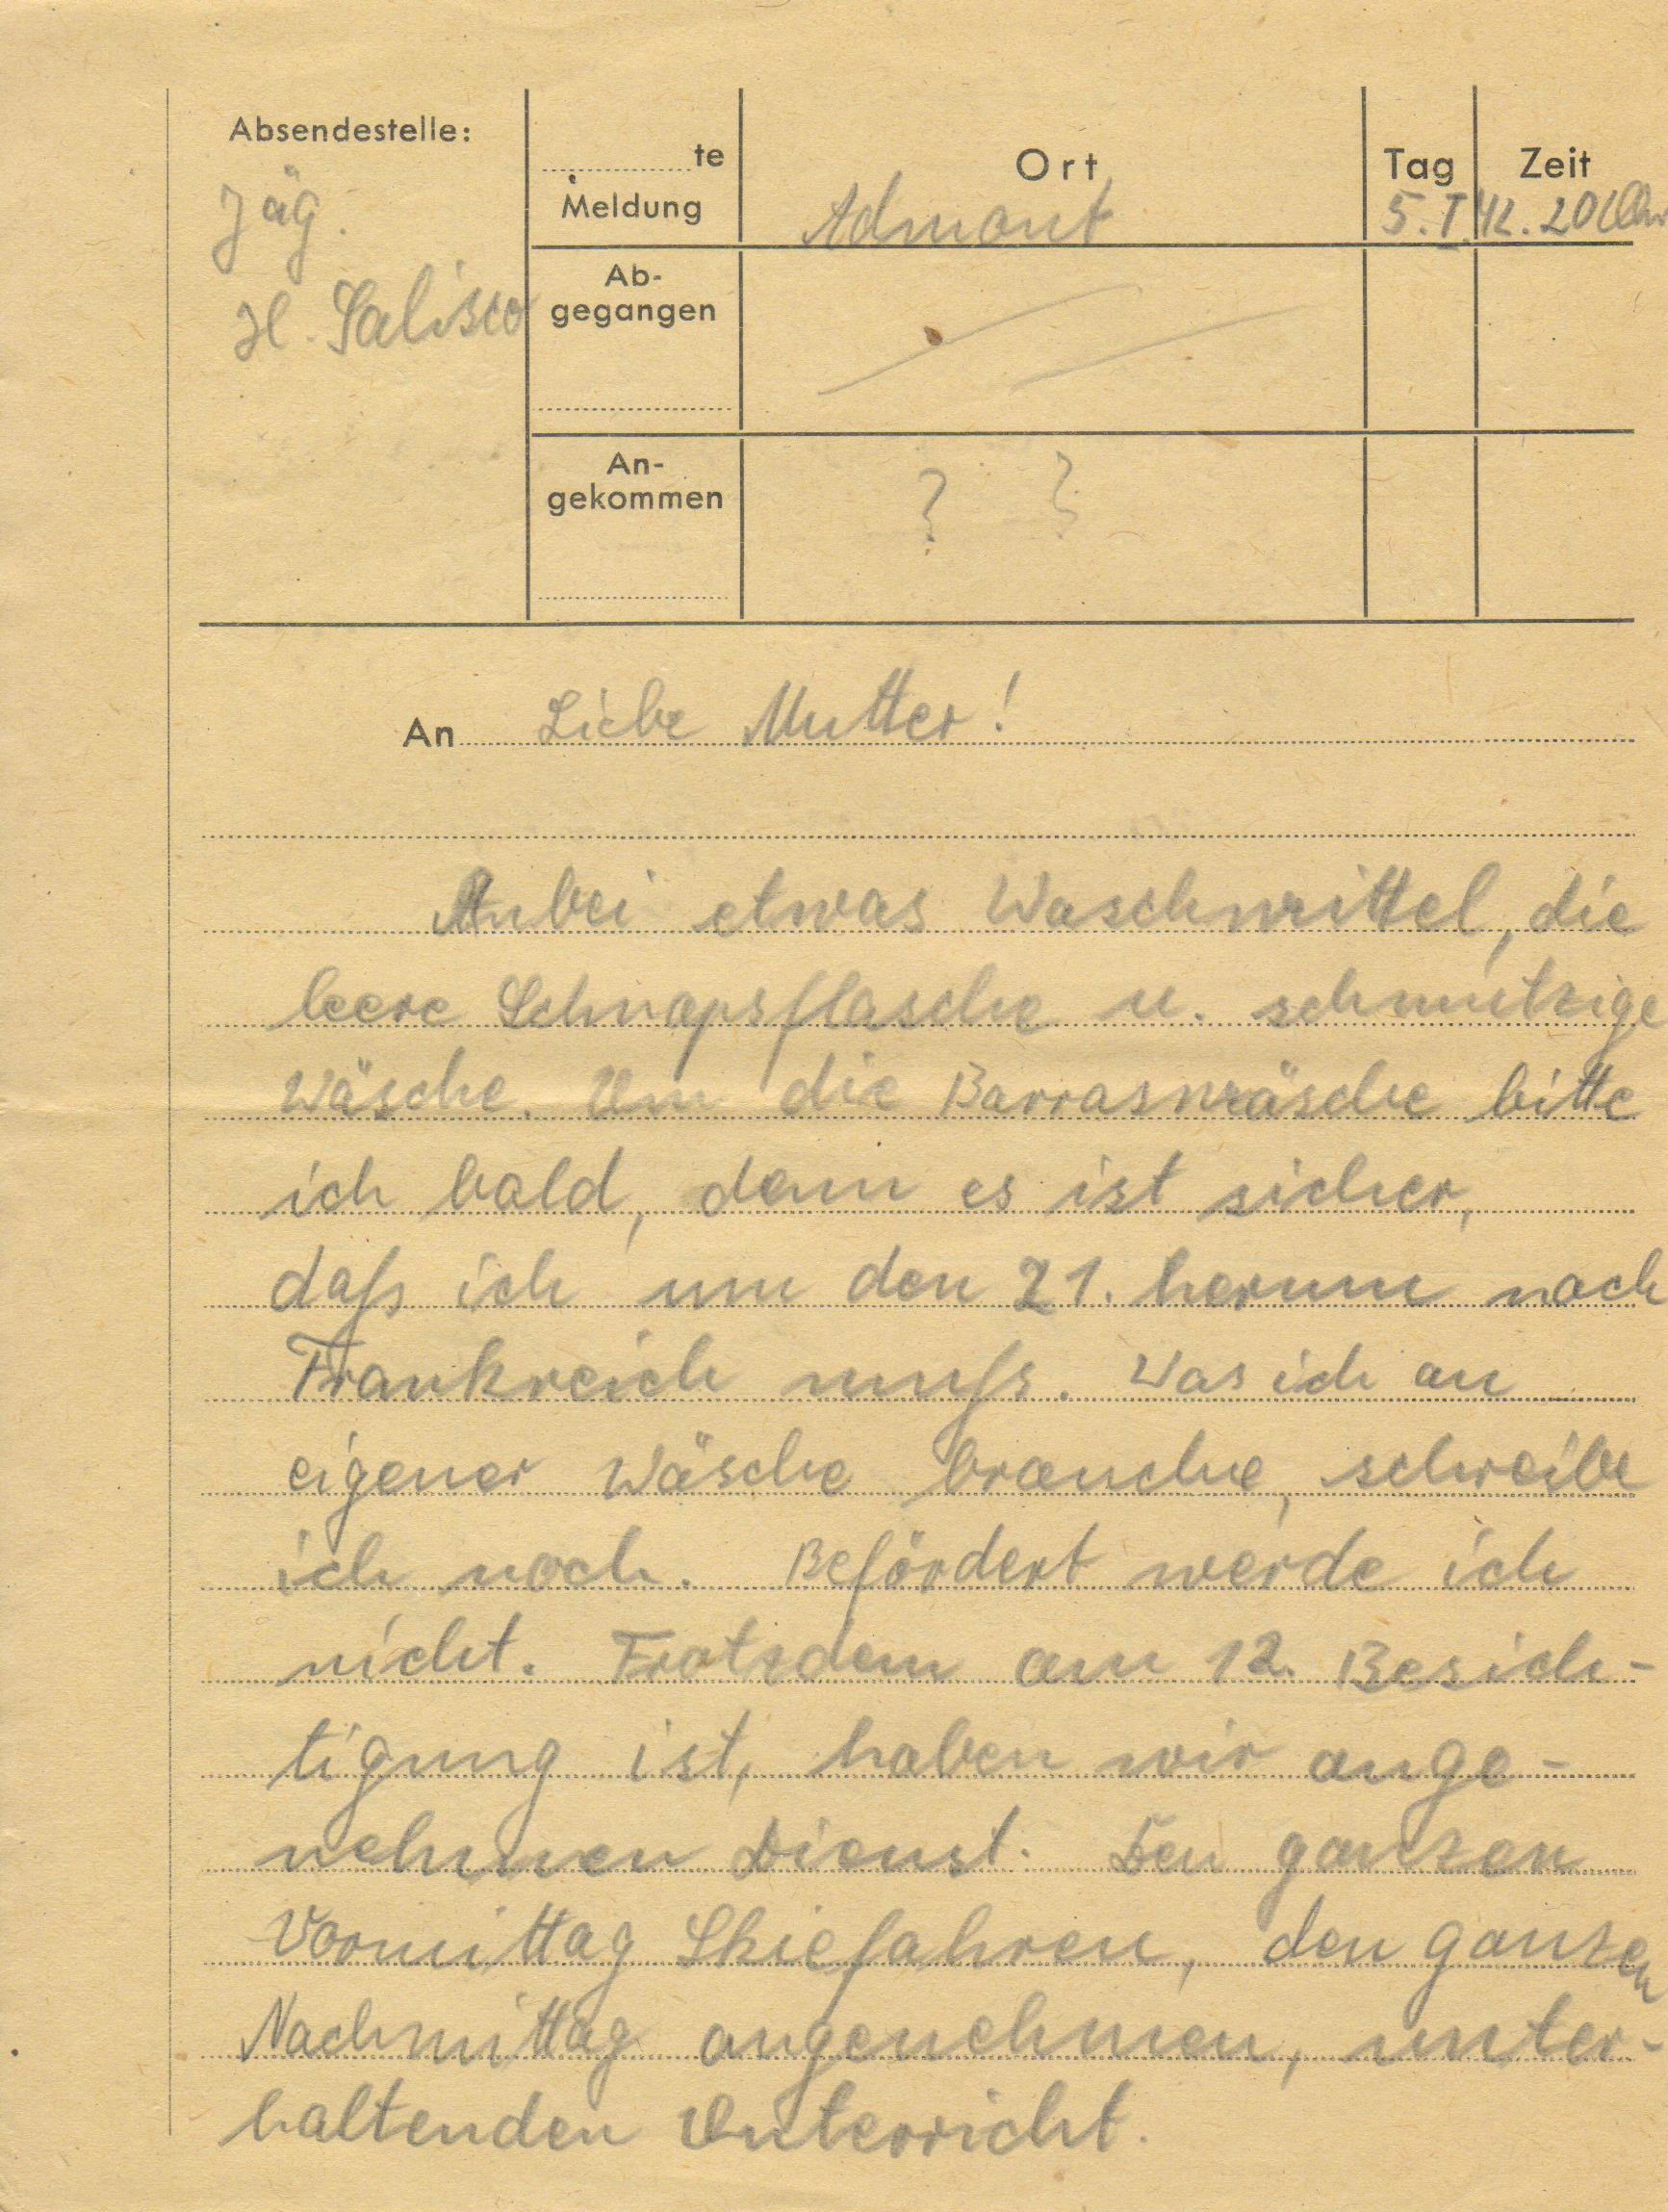 Absendestelle:
te
Meldung
Ort
Tag
Zeit
Jäg.
Admont
5. I. 42. 20 Uhr
H. Salisco
Ab-
gegangen
An-
gekommen
? ?
An Liebe Mutter!
Anbei etwas Waschmittel, die
leere Schnapsflasche u. schmutzige
Wäsche. Um die Barraswäsche bitte
ich bald, denn es ist sicher,
daß ich um den 21. herum nach
Frankreich muß. Was ich an
eigener Wäsche brauche, schreibe
ich noch. Befördert werde ich
nicht. Trotzdem am 12. Besich-
tigung ist, haben wir ange-
nehmen Dienst. Den ganzen
Vormittag Skiefahren, den ganzen
Nachmittag angenehmen, unter-
haltenden Unterricht.